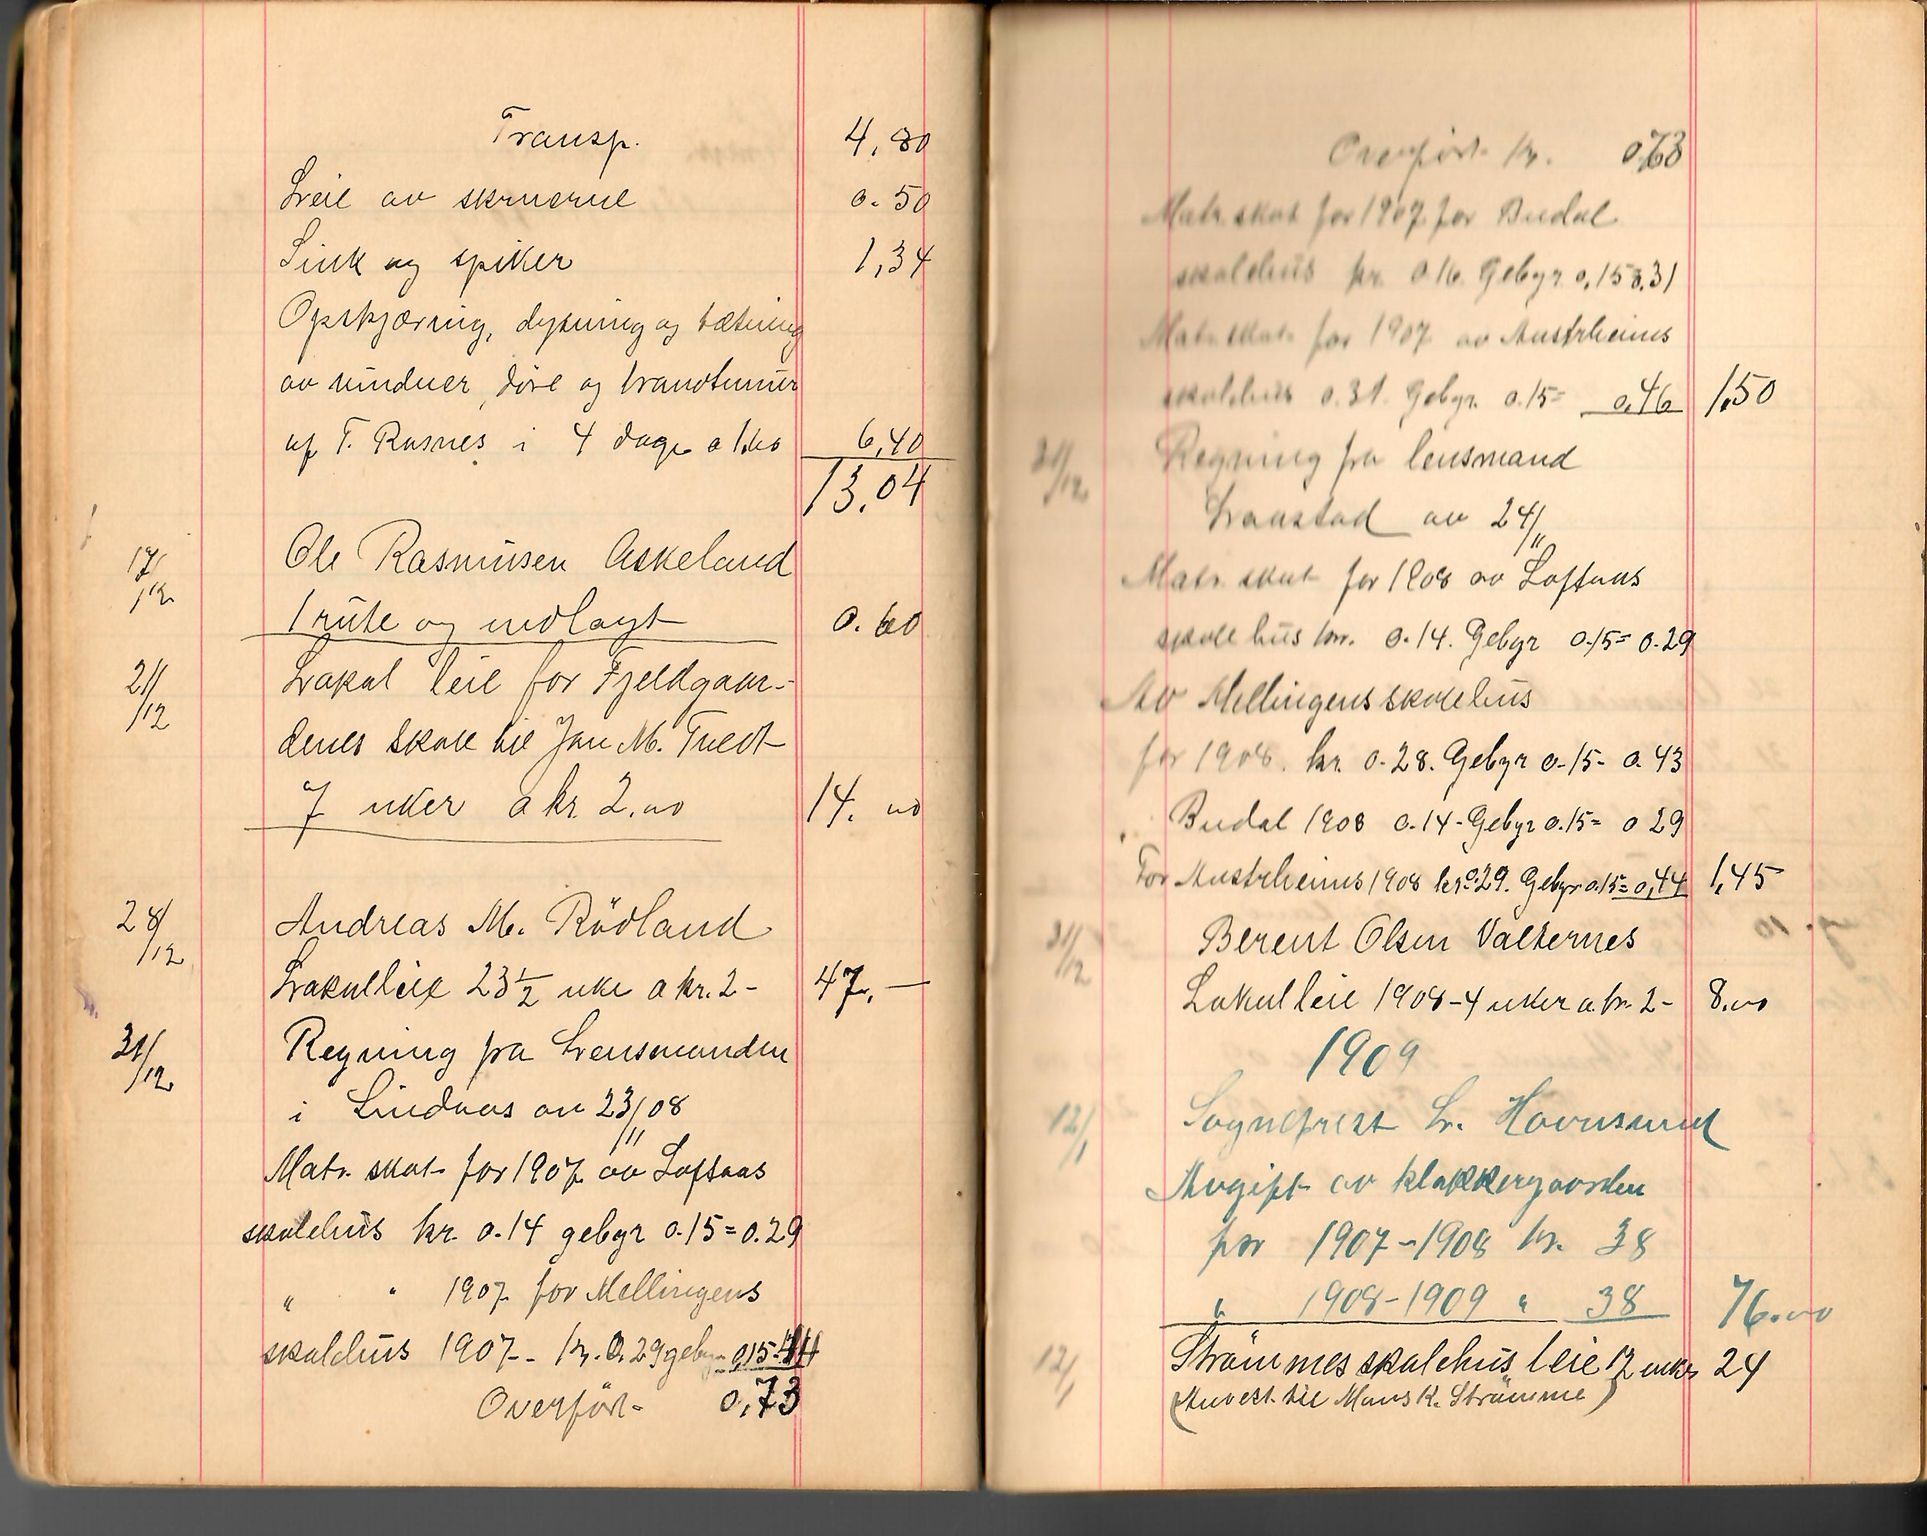 Transp. 4,80
Leie av skruerne 0.50
Sink og spiker 1,34
Opskjæring, dytning og tætning
av vinduer, döre og brandtmur
af T. Rasnes i 4 dage a 1.60 6,40
13.04
17/12 Ole Rasmusen Askeland
1 rute og indlagt 0.60
21/12 Lokal leie for Fjeldgaar-
denes skole til Jan M. Tvedt
7 uker a kr. 2.00 14.00
28/12 Andreas M. Rödland
Lokalleie 23 1/2 uke a kr. 2- 47,—
31/12 Regning fra Lensmanden
i Lindaas av 23/11 08
Matr. skat for 1907 av Loftaas
skolehus kr. 0.14 gebyr 0.15=0.29
" " 1907 for Mellingens
skolehus 1907- kr. 0.29 gebyr 0,15 44
Overfört- 0,73
Overfört kr. 0,73
Matr. skat for 1907 for Budal
skolehus kr. 0.16. Gebyr 0,15 0.31
Matr. skat for 1907 av Austrheims
skolehus 0.31. Gebyr 0.15= 0,46 1,50
31/12 Regning fra lensmand
av 24/11
Matr. skat for 1908 av Loftaas
skolehus kr. 0.14. Gebyr 0.15= 0.29
Av Mellingens skolehus
for 1908. kr. 0.28. Gebyr 0.15- 0.43
Budal 1908 0.14- Gebyr 0.15= 0 29
For Austrheims 1908 kr 0.29. Gebyr 0.15=0,44 1,45
31/12 Berent Olsen Valternes
Lokalleie 1908-4 uker a kr. 2- 8.00
1909
12/1 Sogneprest L. Hovnsund
Avgift av klokkergaarden
for 1907-1908 kr. 38
" 1908-1909 " 38 76.00
12/1 Strömmes skolehus leie 12 uker 24
(Anvist til Mons K. Strömme)